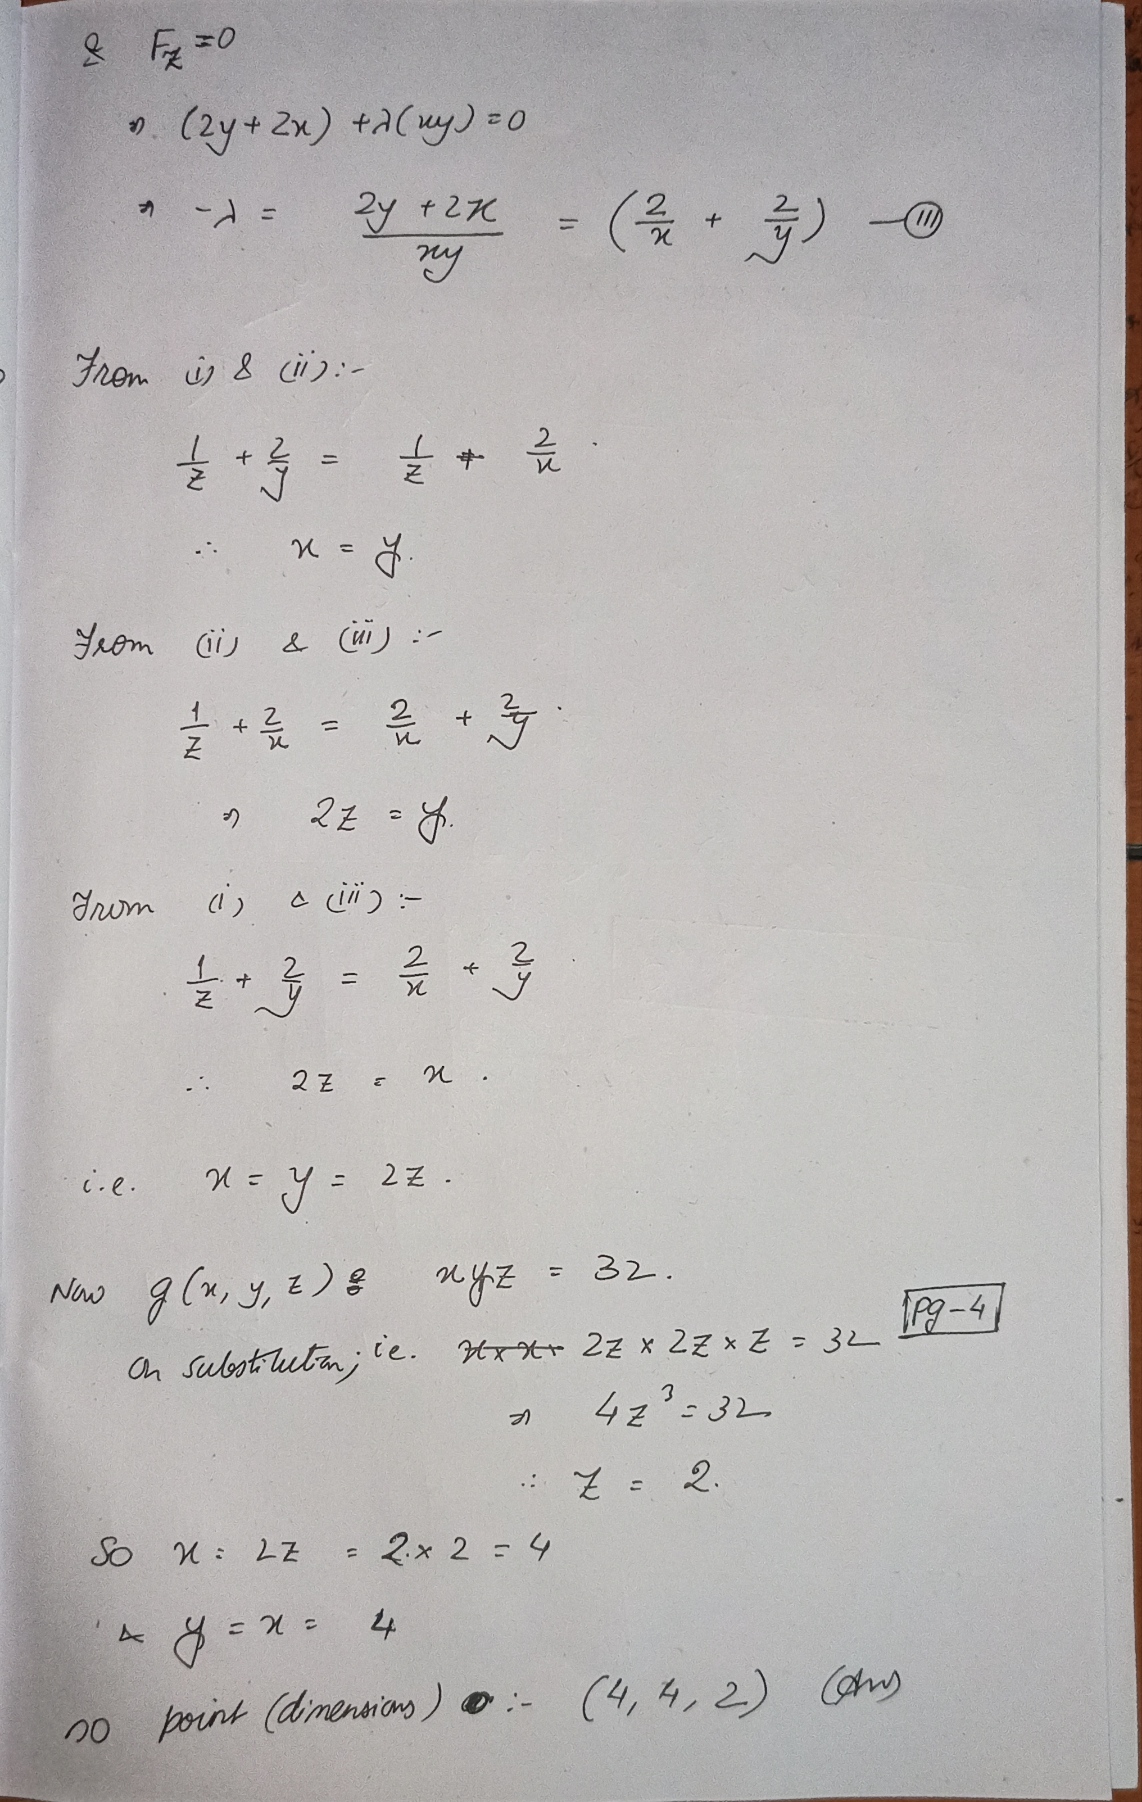 & F_z = 0
⇒ (2y + 2x) + λ(xy) = 0
⇒ -λ = (2y + 2x)/(xy) = (2/x + 2/y) — (III)
From (i) & (ii) :-
1/z + 2/y = 1/z + 2/x .
∴ x = y.
From (ii) & (iii) :-
1/z + 2/x = 2/x + 2/y .
⇒ 2z = y.
From (i) & (iii) :-
1/z + 2/y = 2/x + 2/y
∴ 2z = x .
i.e. x = y = 2z .
Now g(x, y, z) = xyz = 32.
Pg-4
On substitution; ie. 2z × 2z × z = 32
⇒ 4z³ = 32
∴ z = 2.
So x = 2z = 2 × 2 = 4
& y = x = 4
so point (dimensions) :- (4, 4, 2) (Ans)